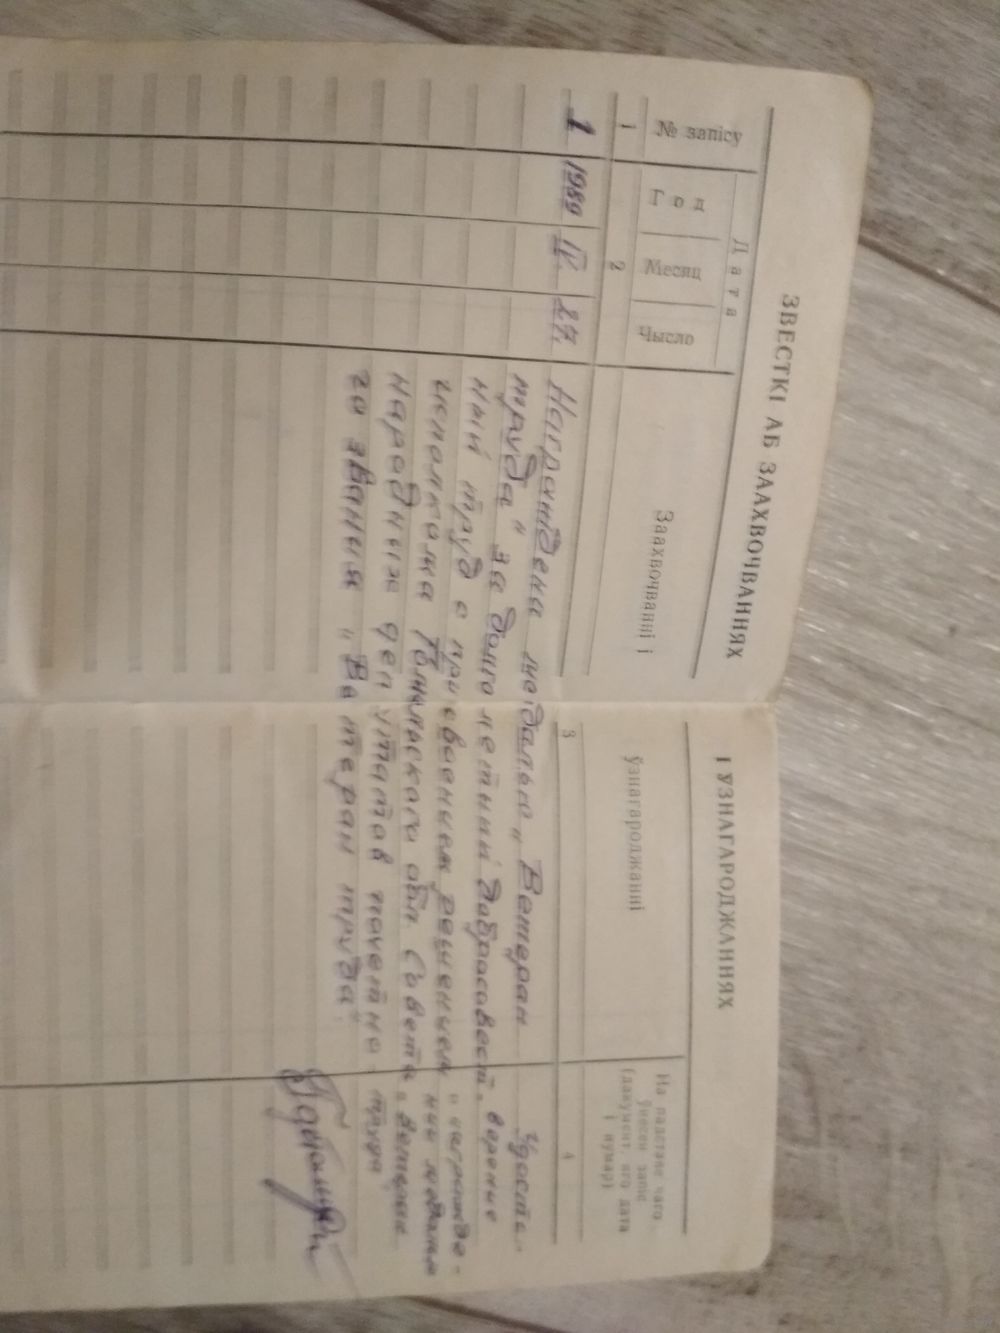 ЗВЕСТКІ АБ ЗААХВОЧВАННЯХ
І ЎЗНАГАРОДЖАННЯХ
№ запісу
Дата
Год
Месяц
Чысло
Заахвочванні і
ўзнагароджанні
На падставе чаго
ўнесен запіс
(дакумент, яго дата
і нумар)
1
2
3
4
1 1989 IV. 27.
Награждена медалью „Ветеран
труда" за долголетний добрасовест-
ный труд с присвоением решением
исполкома облн. Совета
народных депутатов почетно-
го звания „Ветеран труда".
Удосто-
верение
о награжде-
нии медалью
„Ветеран
труда